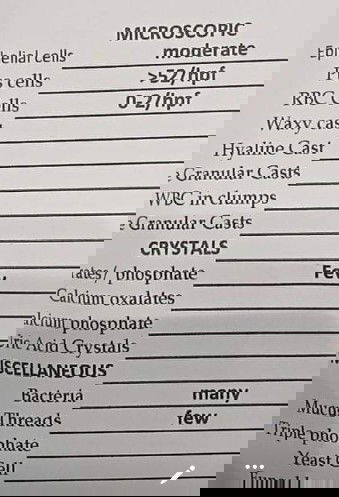 MICROSCOPIC
Epithelial Cells moderate
Pus cells >52/hpf
RBC Cells 0-2/hpf
Waxy cast
Hyaline Cast
Granular Casts
WBC in clumps
Granular Casts
CRYSTALS
/phosphate
Calcium oxalates
Calcium phosphate
Uric Acid Crystals
MISCELLANEOUS
Bacteria many
Mucus Threads few
Triple phosphate
Yeast Cell